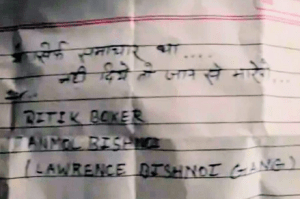 ये सिर्फ समाचार था ....
नही दिये तो जान से मारेंगे ...
RITIK BOXER
ANMOL BISHNOI
(LAWRENCE BISHNOI GANG)